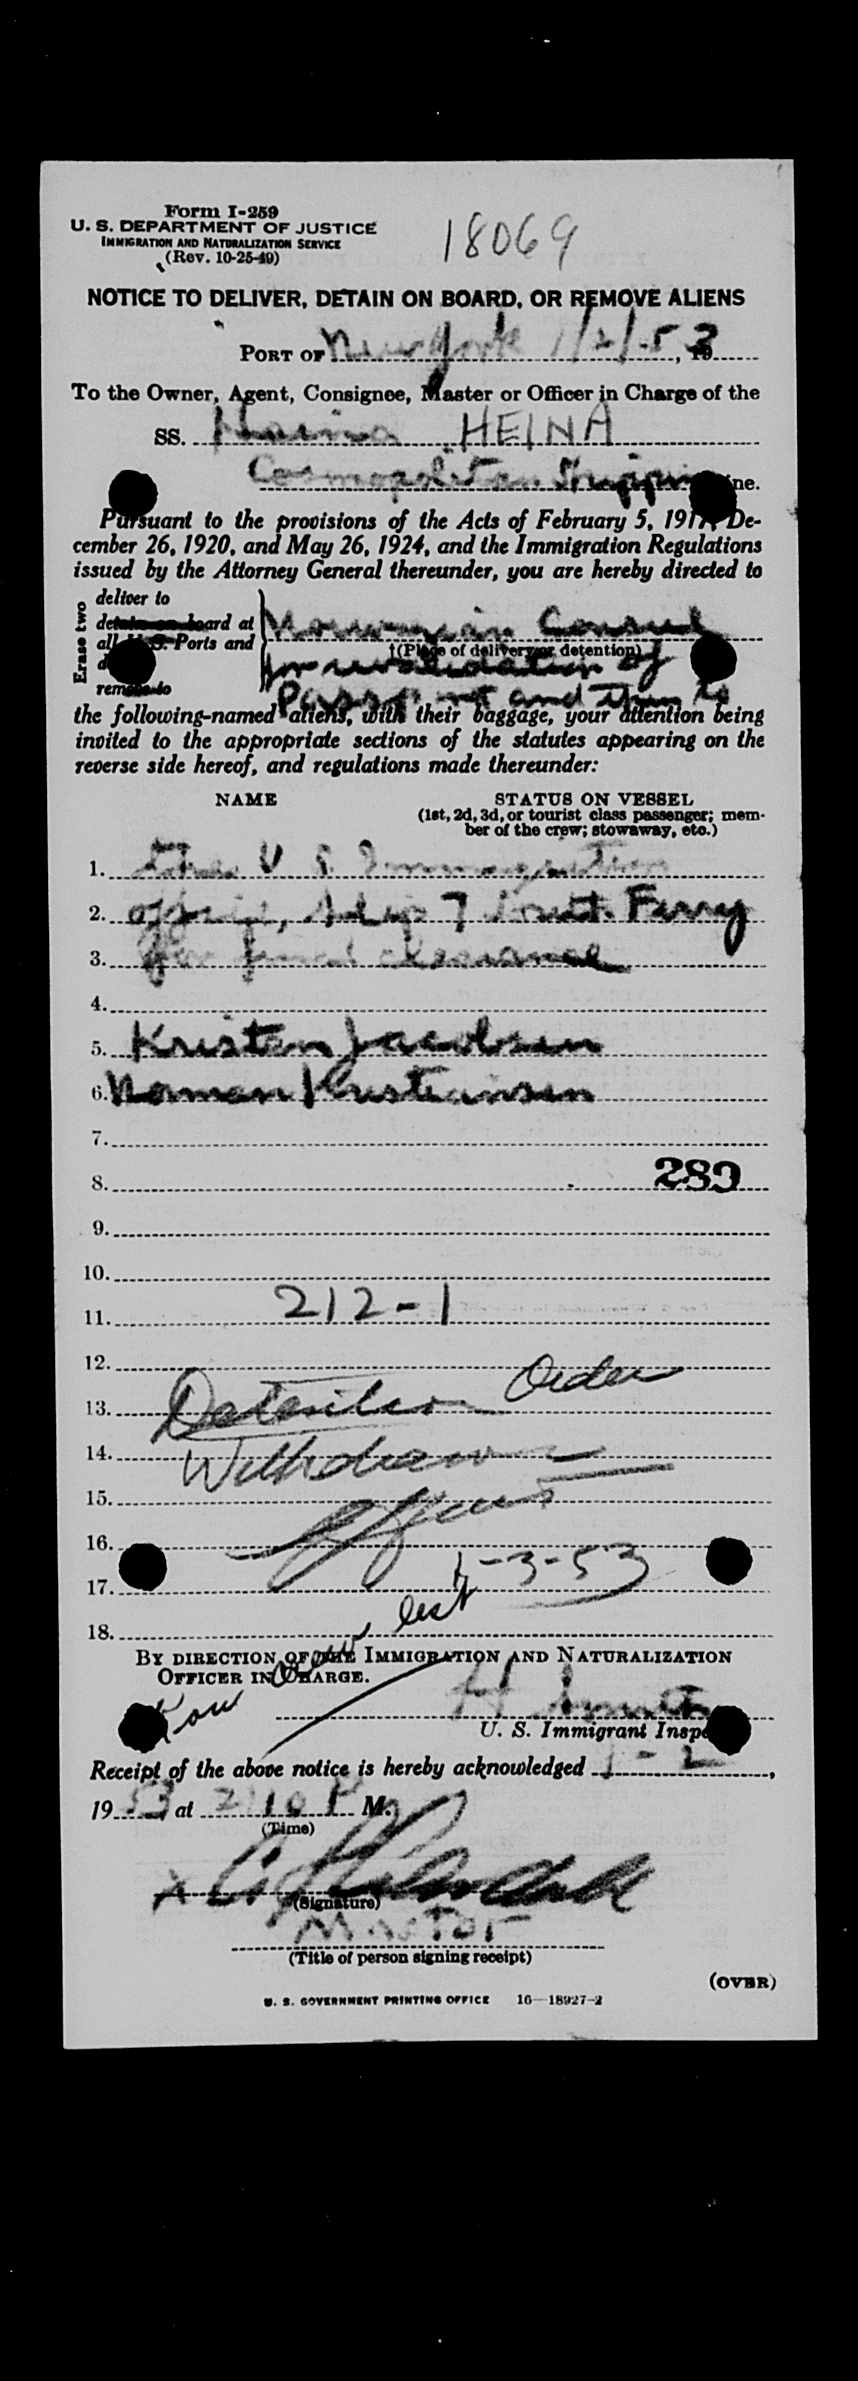 Form I-259
U. S. DEPARTMENT OF JUSTICE
IMMIGRATION AND NATURALIZATION SERVICE
(Rev. 10-25-49)
18069
NOTICE TO DELIVER, DETAIN ON BOARD, OR REMOVE ALIENS
PORT OF New York 1/2/53, 19
To the Owner, Agent, Consignee, Master or Officer in Charge of the
SS. HEINA
Cosmopolitan Shipping Line.
Pursuant to the provisions of the Acts of February 5, 1917, De-
cember 26, 1920, and May 26, 1924, and the Immigration Regulations
issued by the Attorney General thereunder, you are hereby directed to
Erase two
deliver to
detain on board at
all U. S. Ports and
remove to
Norwegian Consul
†(Place of delivery or detention)
for revalidation of
Passport and then to
the following-named aliens, with their baggage, your attention being
invited to the appropriate sections of the statutes appearing on the
reverse side hereof, and regulations made thereunder:
NAME STATUS ON VESSEL
(1st, 2d, 3d, or tourist class passenger; mem-
ber of the crew; stowaway, etc.)
1. the U S Immigration
2. office, Slip 7 South Ferry
3. for final clearance
4.
5. Kristen Jacobsen
6. Norman Kristiansen
7.
8. 289
9.
10.
11. 212-1
12.
13. Detention Order
14. Withdrawn
15.
16.
17. 1-3-53
18.
crew list
BY DIRECTION OF THE IMMIGRATION AND NATURALIZATION
OFFICER IN CHARGE.
H Smith
U. S. Immigrant Inspe
Receipt of the above notice is hereby acknowledged 1-2,
1953 at 2 10 P M.
(Time)
(Signature)
Master
(Title of person signing receipt)
(OVER)
U. S. GOVERNMENT PRINTING OFFICE 16—18927-2